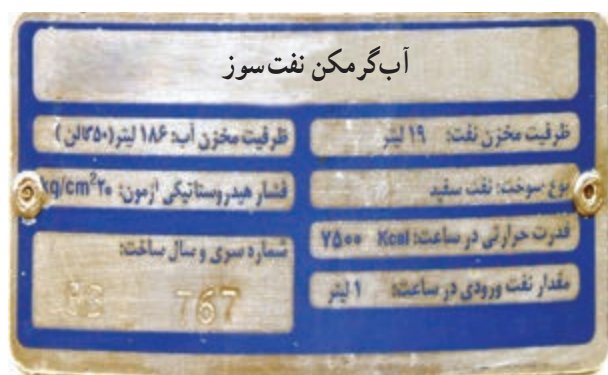 آب‌گرمکن نفت‌سوز
ظرفیت مخزن نفت: ۱۹ لیتر
نوع سوخت: نفت سفید
قدرت حرارتی در ساعت: ۷۵۰۰ Kcal
مقدار نفت ورودی در ساعت: ۱ لیتر
ظرفیت مخزن آب: ۱۸۶ لیتر (۵۰ گالن)
فشار هیدروستاتیکی آزمون: ۲۰ kg/cm²
شماره سری و سال ساخت:
767